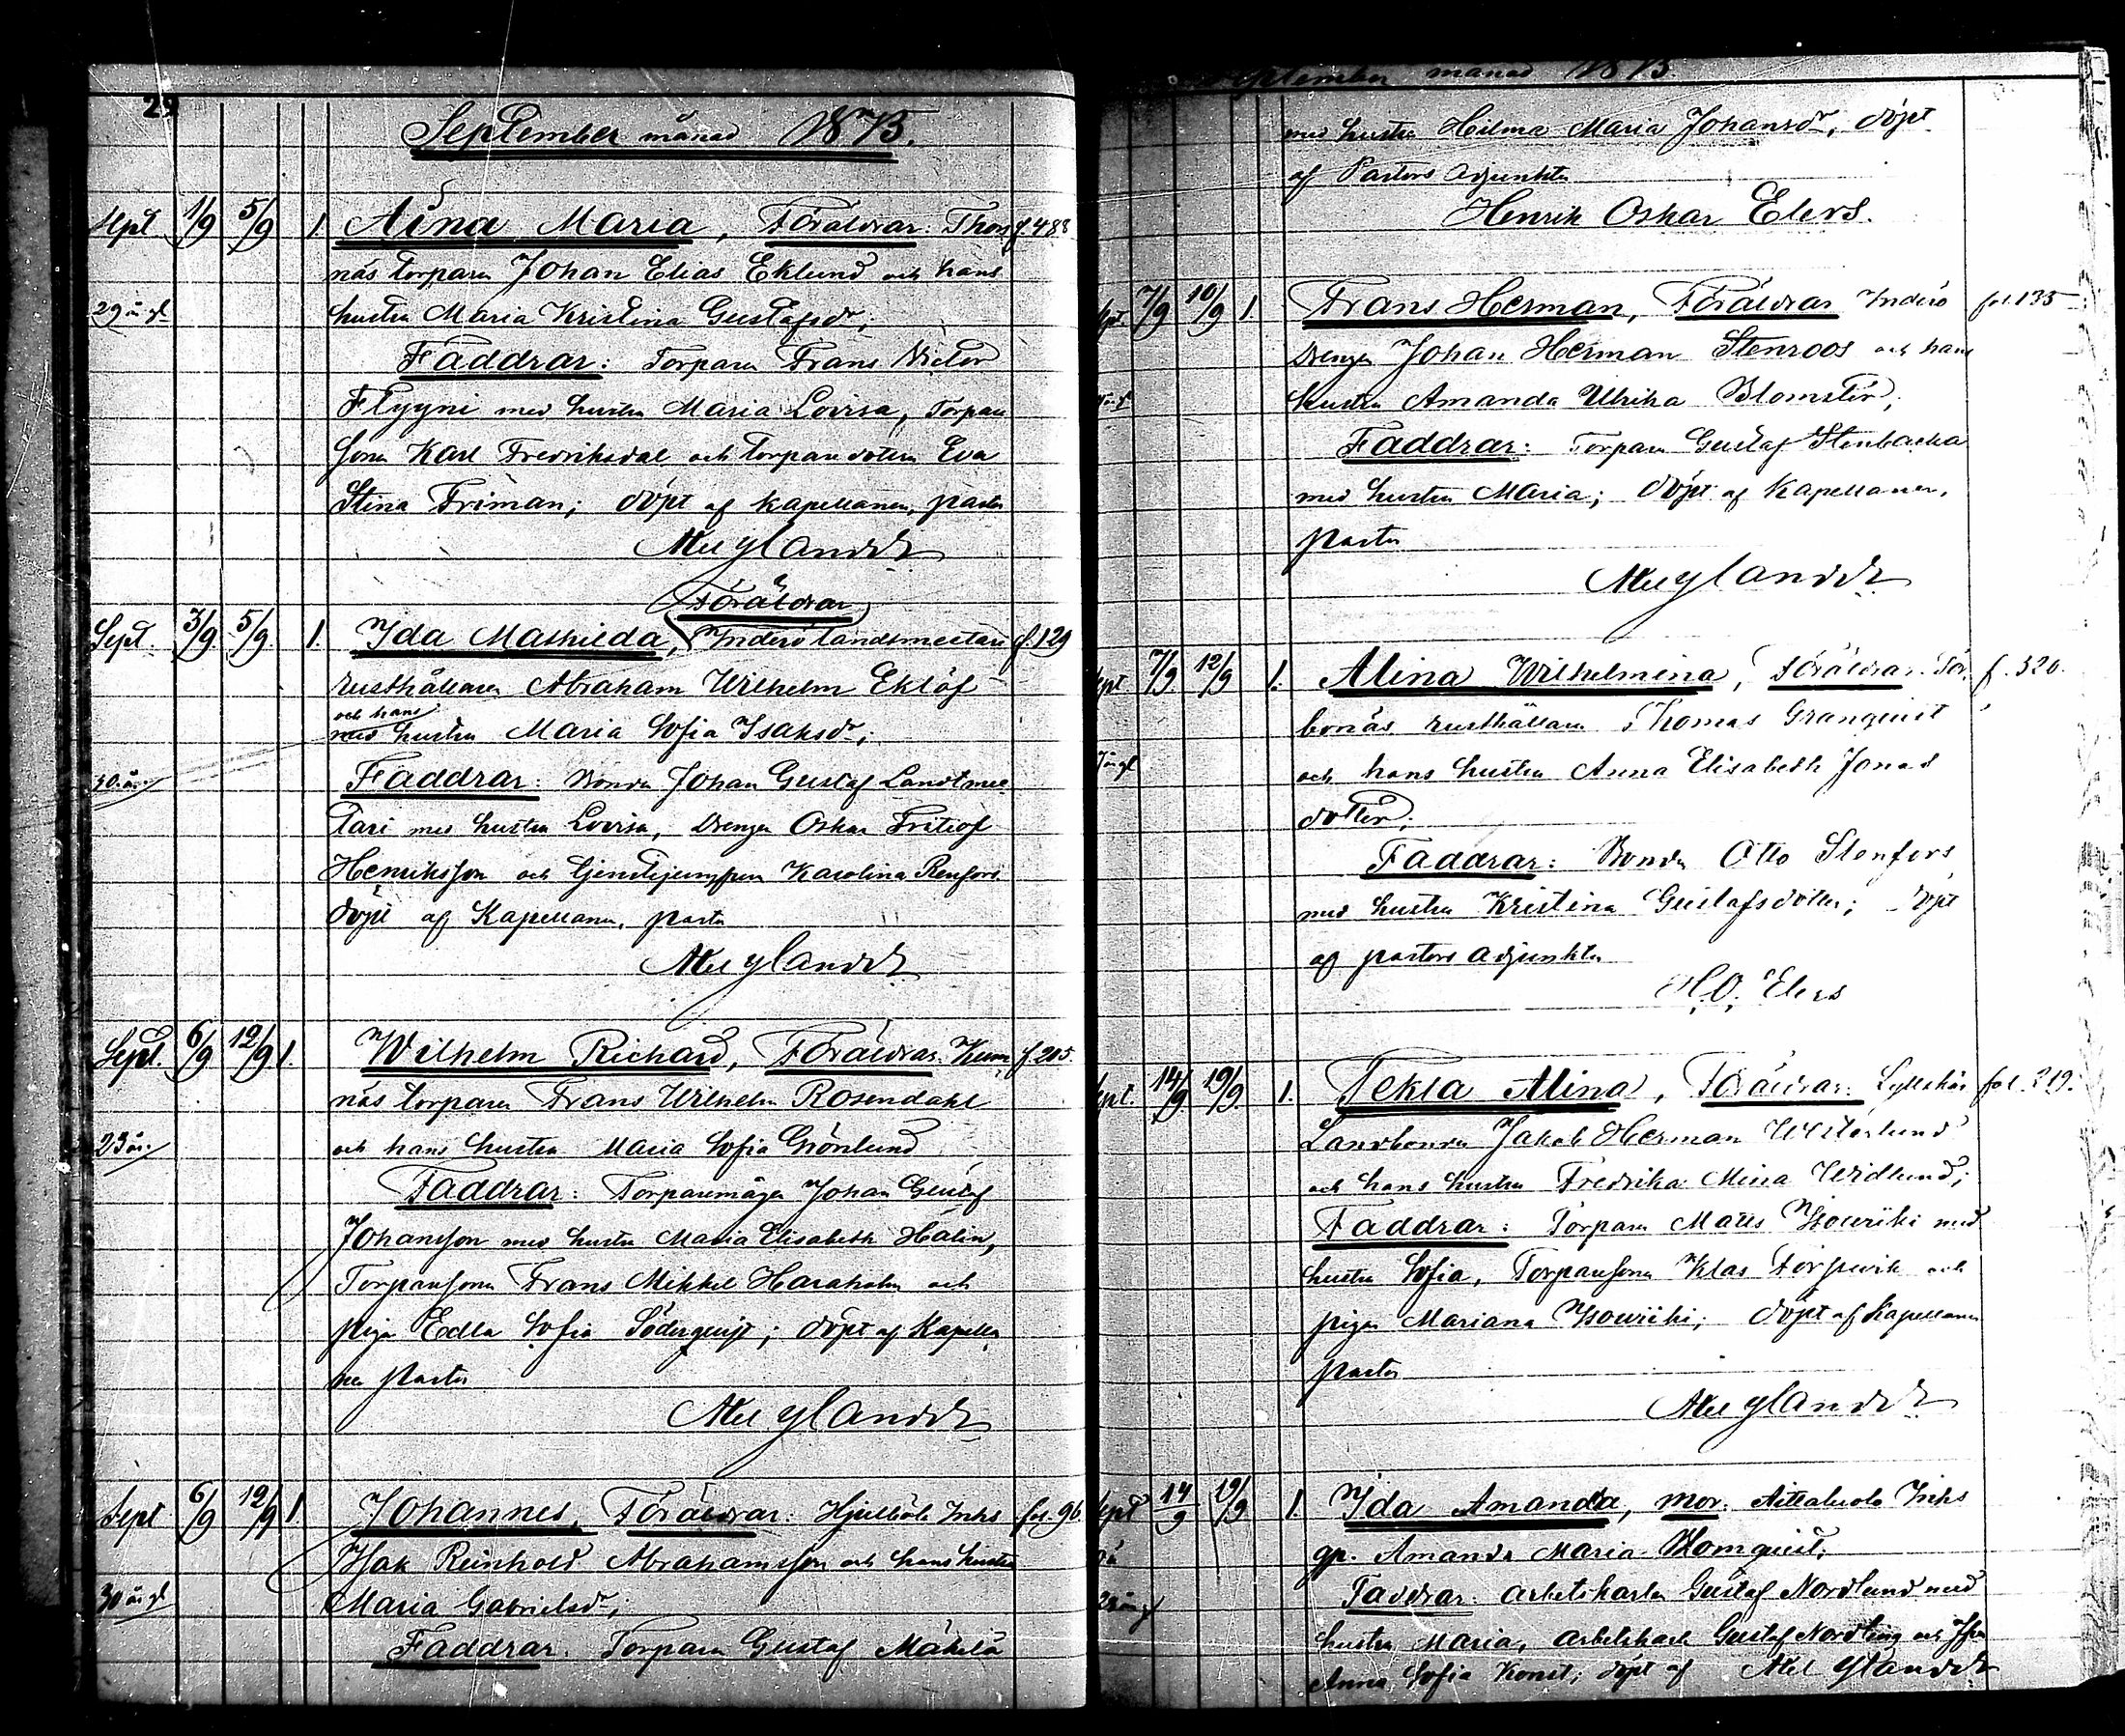 29
September månad 1875.
Sept 1/9 5/9 1. Aina Maria, Föräldrar: Thors f. 488
näs torparen Johan Elias Eklund och hans
29 år gl hustru Maria Kristina Gustafsdr;
Faddrar: Torparen Frans Victor
Flyyni med hustru Maria Lovisa, Torpare
sonen Karl Fredriksdal och torparedottren Eva
Stina Friman; döpt af Kapellanen, pastor
Nylander
Föräldrar
Sept. 3/9 5/9. 1. Ida Mathilda, Inderö landtmeetari f. 129
rusthållaren Abraham Wilhelm Eklöf
och hans
med hustru Maria Sofia Isaksdr;
30 år. Faddrar: Bonden Johan Gustaf Landtmee
tari med hustru Lovisa, Drengen Oskar Fritiof
Henriksson och Tjenstejungfrun Karolina Renfors.
döpt af Kapellanen, pastor
Nylander
Sept. 6/9 12/9 1. Wilhelm Richard, Föräldrar: f. 205.
näs torparen Frans Wilhelm Rosendahl
23 år. och hans hustru Maria Sofia Grönlund
Faddrar: Torparemågen Johan Gustaf
Johansson med hustru Maria Elisabeth Halin,
Torparesonen Frans Mikkel Haraholm och
pigan Edla Sofia Söderquist; döpt af Kapella
nen pastor
Nylander
Sept 6/9 12/9 1 Johannes, Föräldrar: Hjulböle Inhs fol. 96
Isak Reinhold Abrahamsson och hans hustru
30 år gl Maria Gabrielsdr;
Faddrar: Torparen Gustaf Mäkelä
September månad 1875.
med hustru Hilma Maria Johansdr, döpt
af Pastors Adjunkten
Henrik Oskar Elers.
Sept. 7/9 10/9 1. Frans Herman, Föräldrar Inderö fol. 135
Drengen Johan Herman Stenroos och hans
hustru Amanda Ulrika Blomster;
Faddrar: Torparen Gustaf Stenbacka
med hustru Maria; döpt af Kapellanen,
pastor
Nylander
Sept 7/9 12/9 1. Alina Wilhelmina, Föräldrar: Tor f. 320.
bonäs rusthållaren Thomas Granquist
och hans hustru Anna Elisabeth Jonas
dotter;
Faddrar: Bonden Otto Stenfors
med hustru Kristina Gustafsdotter; döpt
af pastors adjunkten
H. O. Elers
Sept. 14/9 19/9. 1. Tekla Alina, Föräldrar: Lyttskär fol. 219.
Landbonden Jakob Herman Westerlund
och hans hustru Fredrika Mina Widlund;
Faddrar: Torparen Matts Isowiiki med
hustru Sofia, Torparesonen Klas och
pigan Mariana Isowiiki; döpt af Kapellanen
pastor
Nylander
Sept 14/9 19/9 1. Ida Amanda, Mor: Inhs
gp. Amanda Maria Blomquist;
Faddrar: Arbetskarlen Gustaf Nordlund med
hustru Maria, arbetskarl Gustaf Nordling och
Anna Sofia Konst; döpt af Nylander